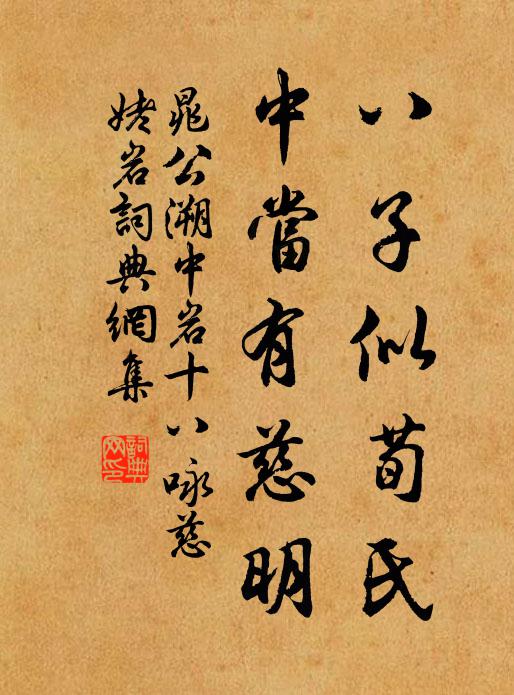 八子似荀氏
中當有慈明
晁公溯中岩十八咏慈
姥岩詞典網集
詞典網印